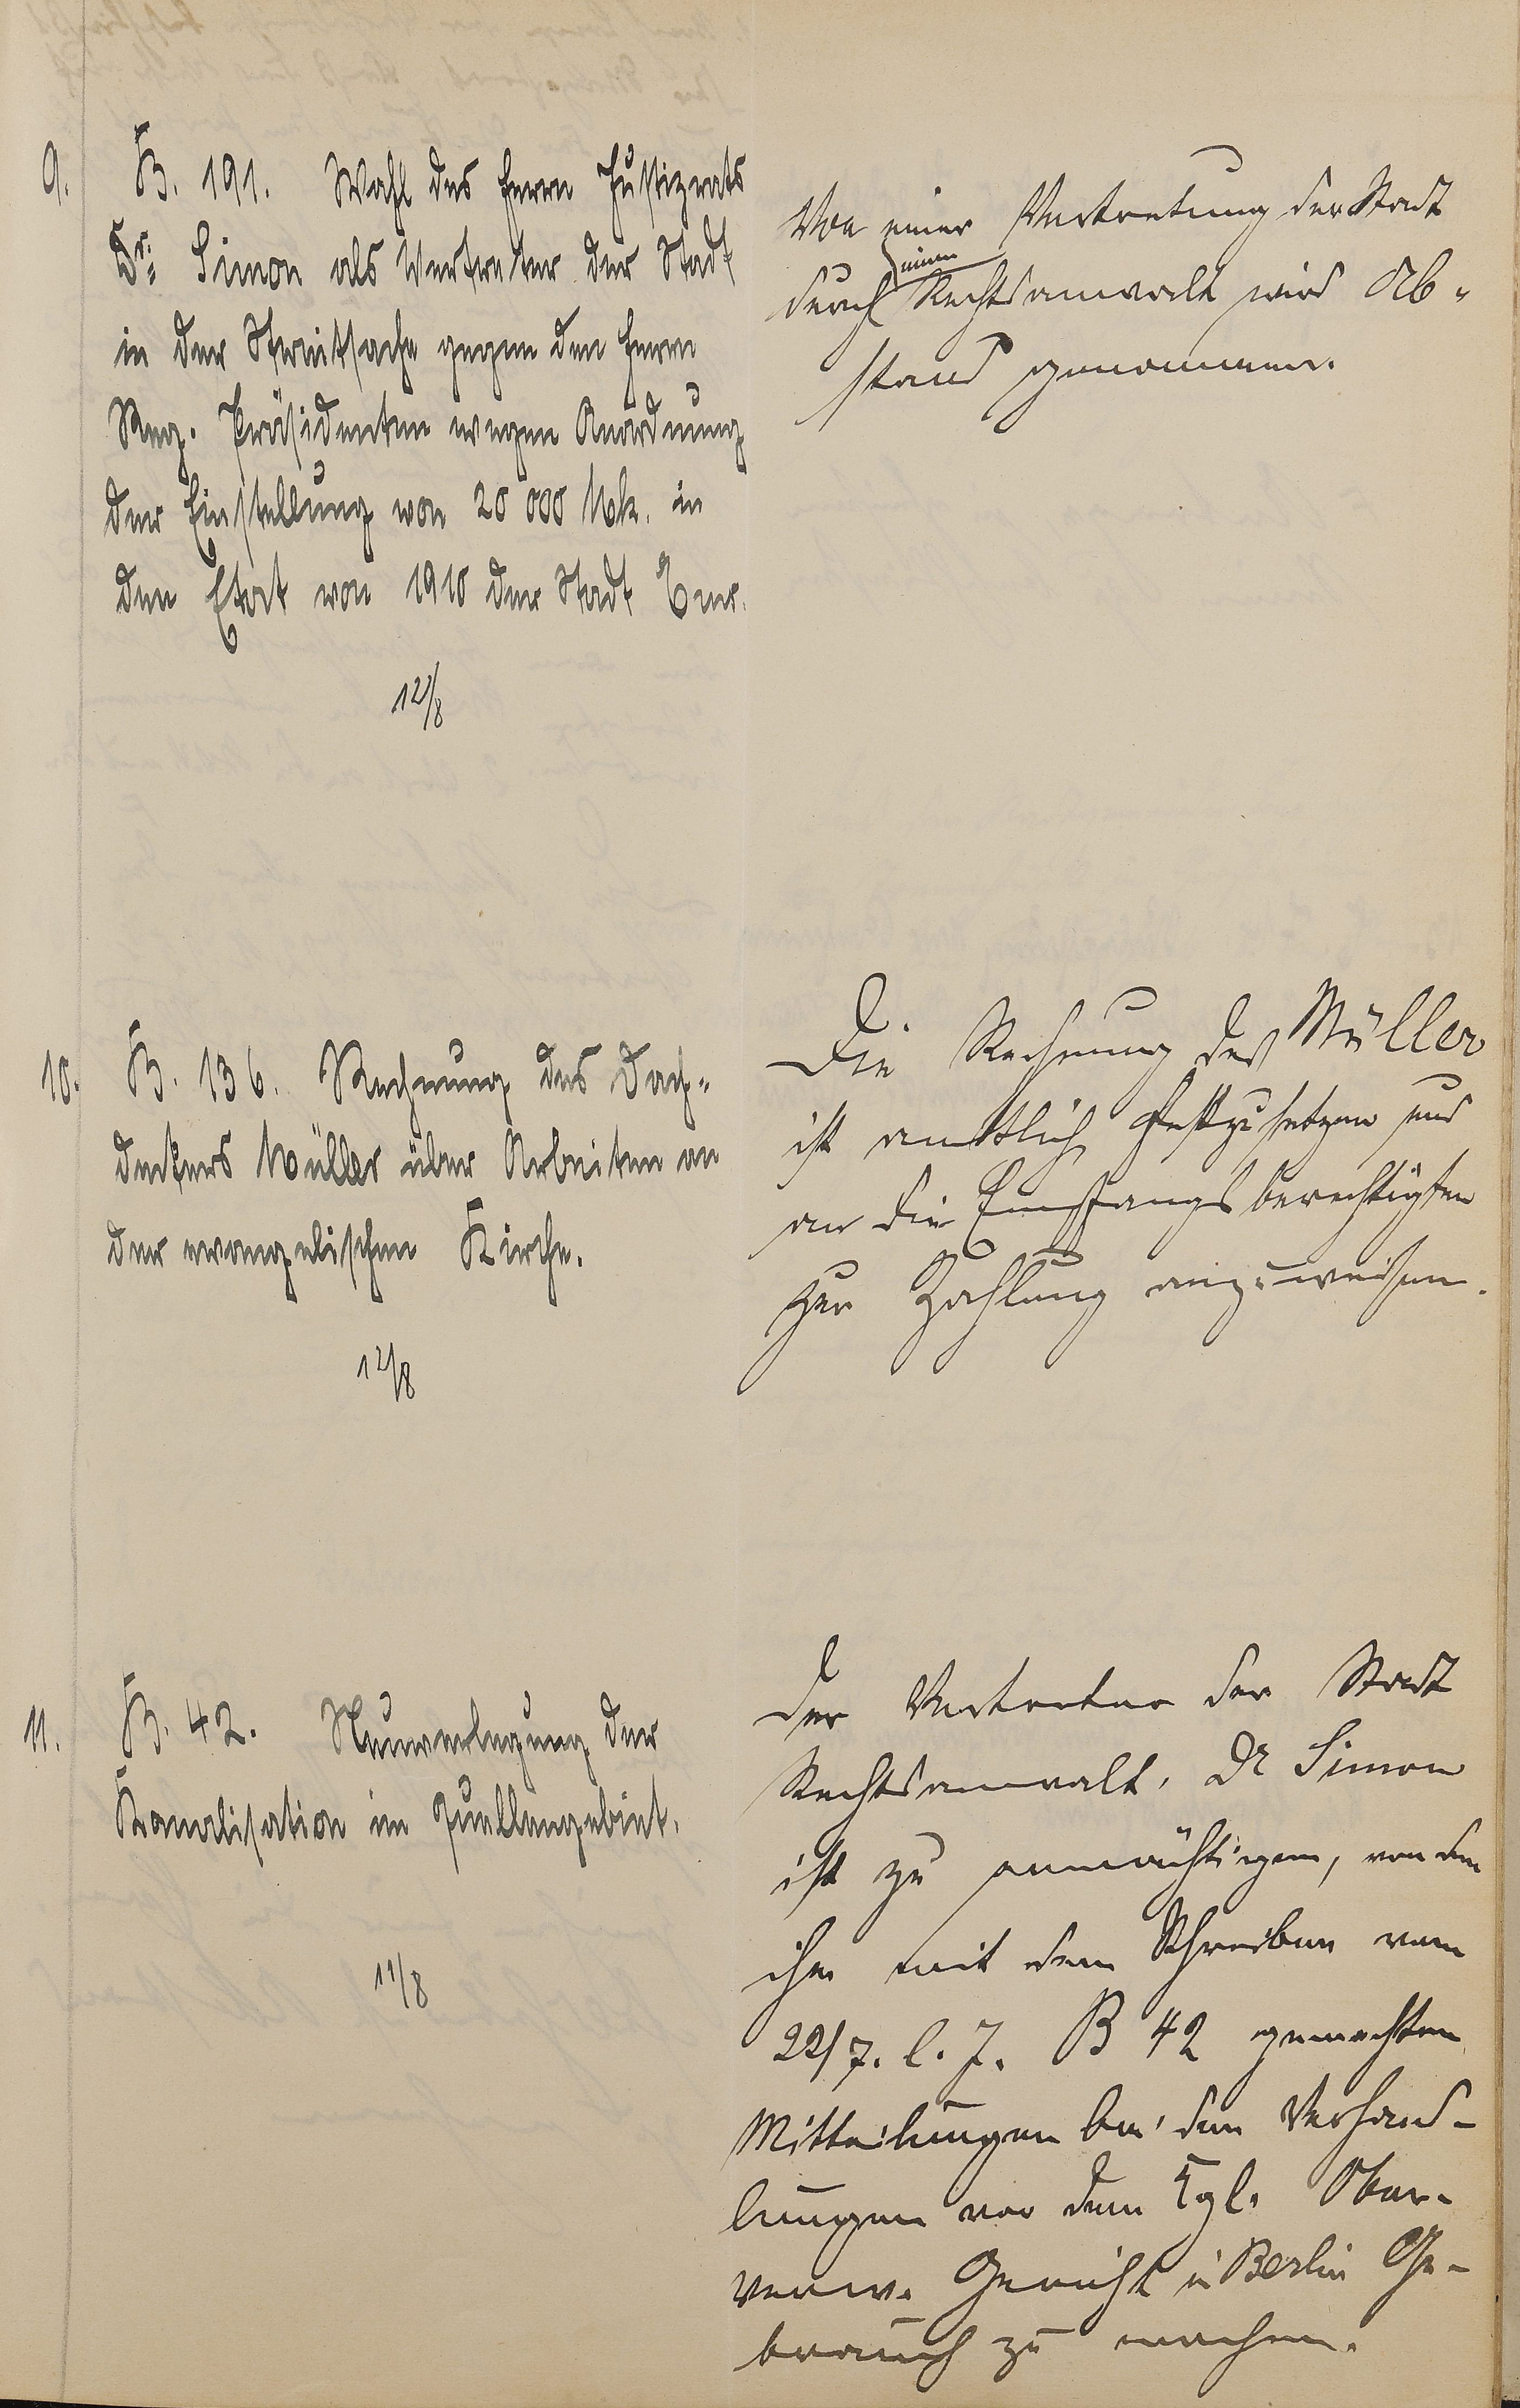 9. B. 191. Wahl des Herrn Justizrats
Dr. Simon als Vertreter der Stadt
in der Streitsache gegen den Herrn
Reg. Präsidenten wegen Anordnung
der Einstellung von 20 000 Mk. in
den Etat von 1910 der Stadt Ems.
12/8
Von einer Vertretung der Stadt
durch einen Rechtsanwalt wird Ab-
stand genommen.
10. B. 136. Rechnung des Dach-
deckers Müller über Arbeiten an
der evangelischen Kirche.
12/8
Die Rechnung des Müller
ist amtlich festzusetzen und
an die Empfangsberechtigten
zur Zahlung anzuweisen.
11. B. 42. Neuverlegung der
Kanalisation im Quellengebiet.
11/8
Der Vertreter der Stadt
Rechtsanwalt, Dr Simon
ist zu ermächtigen, von den
ihm mit dem Schreiben vom
22/7. l. J. B 42 gemachten
Mitteilungen bei den Verhand-
lungen vor dem Kgl. Ober-
verw. Gericht in Berlin Ge-
brauch zu machen.